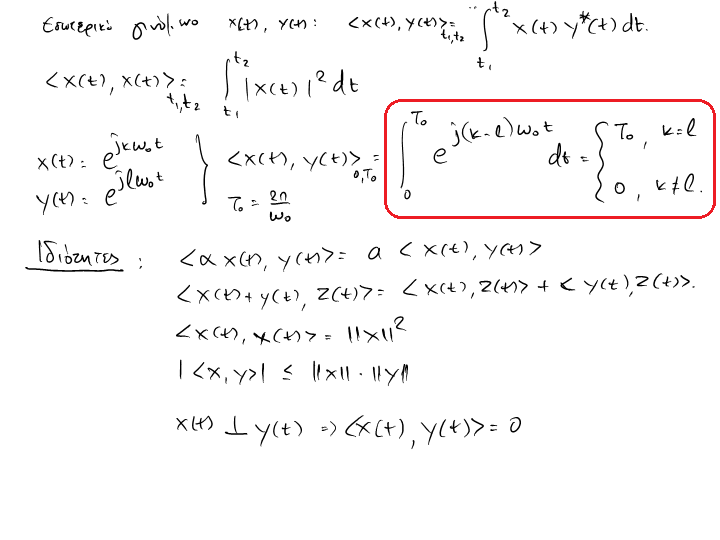 Εσωτερικό γινόμενο x(t), y(t): <x(t), y(t)>_{t₁,t₂} = ∫_{t₁}^{t₂} x(t) y*(t) dt.
<x(t), x(t)>_{t₁,t₂} = ∫_{t₁}^{t₂} |x(t)|² dt
x(t) = e^{jkω₀t} } <x(t), y(t)>_{0,T₀} = ∫_{0}^{T₀} e^{j(k-l)ω₀t} dt = { T₀, k=l
y(t) = e^{jlω₀t} T₀ = 2π/ω₀ 0, k≠l.
Ιδιότητες : <α x(t), y(t)> = a <x(t), y(t)>
<x(t)+y(t), z(t)> = <x(t), z(t)> + <y(t), z(t)>.
<x(t), x(t)> = ||x||²
|<x,y>| ≤ ||x||·||y||
x(t) ⊥ y(t) => <x(t), y(t)> = 0